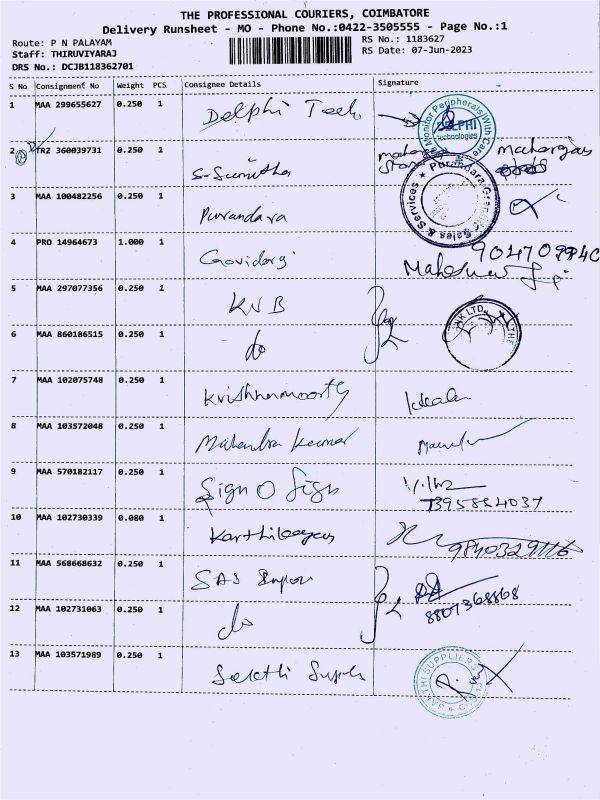 THE PROFESSIONAL COURIERS, COIMBATORE
Delivery Runsheet - MO - Phone No.:0422-3505555 - Page No.:1
Route: P N PALAYAM
Staff: THIRUVIYARAJ
DRS No.: DCJB118362701
RS No.: 1183627
RS Date: 07-Jun-2023
S No Consignment No Weight PCS Consignee Details Signature
1 MAA 299655627 0.250 1 Delphi Tech
Monitor Peripherals With Care DELPHI technologies
2 TRZ 360039731 0.250 1 S-Sunitha
3 MAA 100482256 0.250 1 Purandara
Purandara Sales & Services
4 PRO 14964673 1.000 1
5 MAA 297077356 0.250 1 KVB
6 MAA 860186515 0.250 1 do
K LTD. THE
7 MAA 102075748 0.250 1 Krishnamoorthy
8 MAA 103572048 0.250 1 Mahendra Kumar
9 MAA 570182117 0.250 1 Sign O Sign
7395884037
10 MAA 102730339 0.080 1
9840329116
11 MAA 568668632 0.250 1
8807368868
12 MAA 102731063 0.250 1 do
13 MAA 103571989 0.250 1 Sakthi
SAKTHI SUPPLIERS